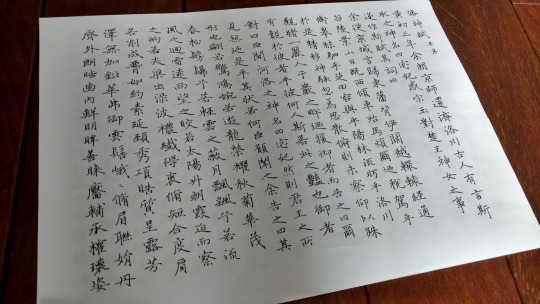 洛神賦
黃初三年余朝京師還濟洛川古人有言斯
水之神名曰宓妃感宋玉對楚王神女之事
遂作斯賦其詞曰
余從京域言歸東藩背伊闕越轘轅經通
谷陵景山日既西傾車殆馬煩爾迺稅駕乎
蘅皋秣駟乎芝田容與乎陽林流眄乎洛川
於是精移神駭忽焉思散俯則未察仰以殊
觀睹一麗人于巖之畔迺援御者而告之曰爾
有覿於彼者乎彼何人斯若此之豔也御者
對曰臣聞河洛之神名曰宓妃然則君王之所
見無迺是乎其狀若何臣願聞之余告之曰其
形也翩若驚鴻婉若遊龍榮曜秋菊華茂
春松髣髴兮若輕雲之蔽月飄颻兮若流
風之迴雪遠而望之皎若太陽升朝霞迫而察
之灼若芙蕖出淥波穠纖得衷脩短合度肩
若削成腰如約素延頸秀項皓質呈露芳
澤無加鉛華弗御雲髻峨〻脩眉聯娟丹
脣外朗皓齒內鮮明眸善睞靨輔承權瓌姿